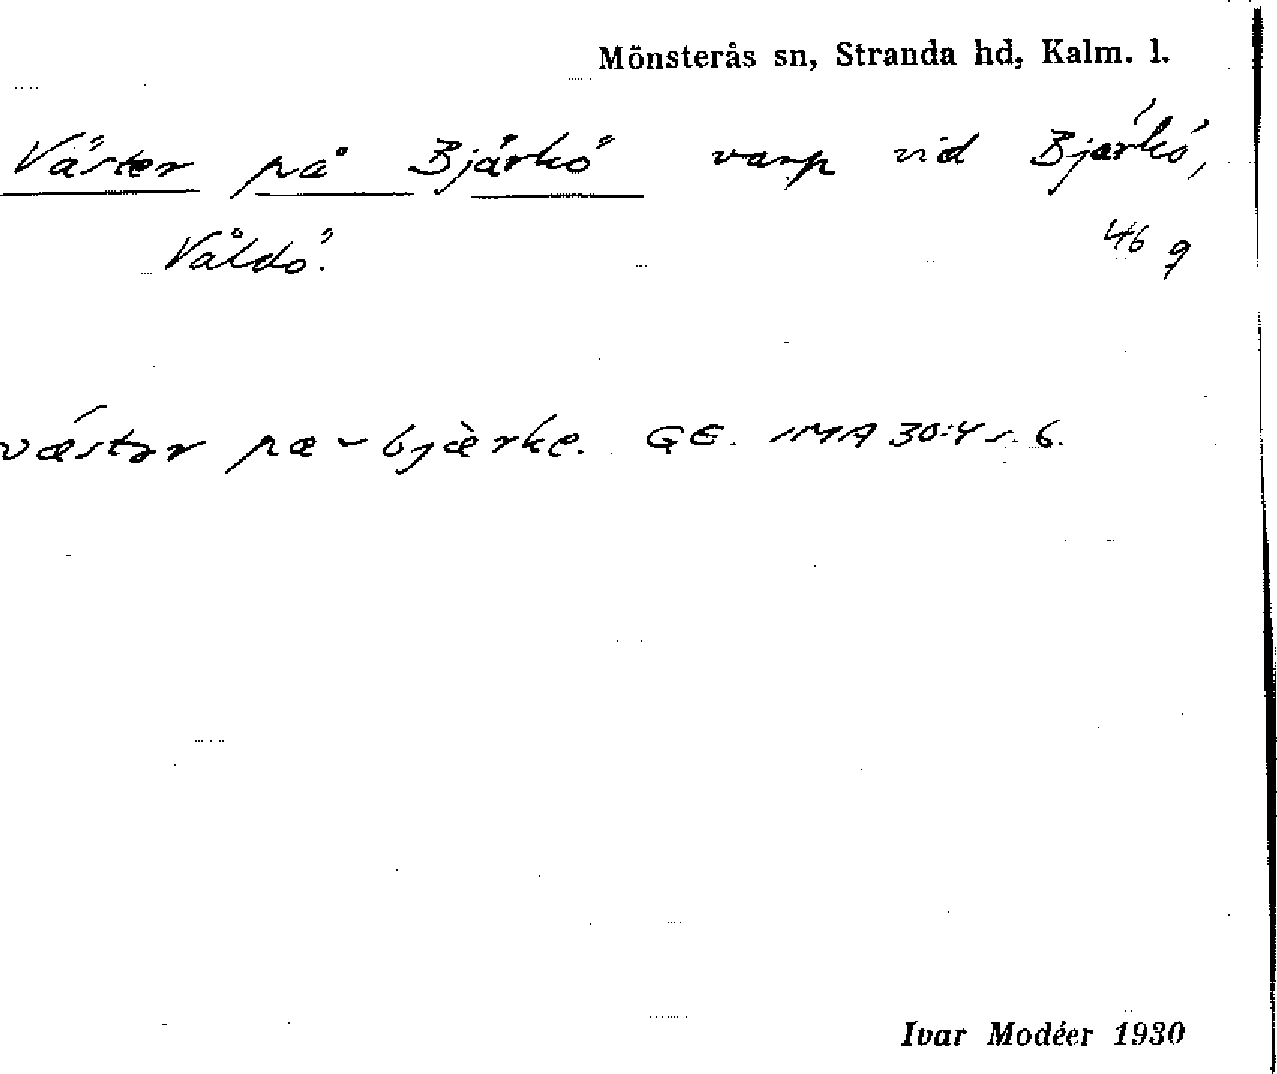 Mönsterås sn, Stranda hd, Kalm. l.
Väster på Bjärkö varp vid Bjärkö,
Våldö. 46 g
væstər pæ - bjærke. GE. IMA 30:4 s. 6.
Ivar Modéer 1930